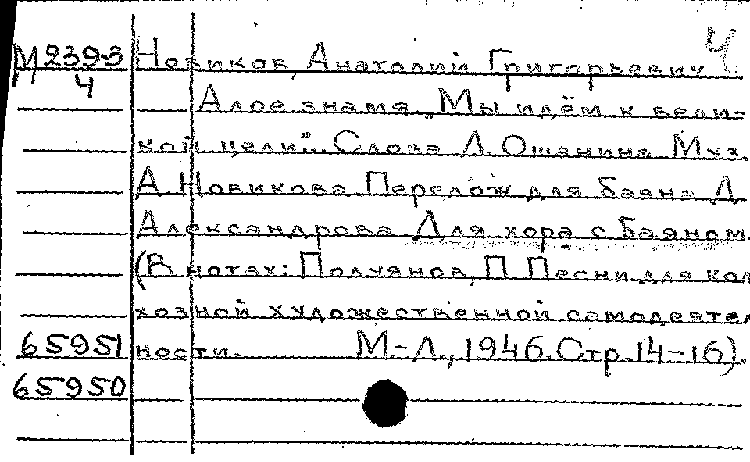 4
М 2393 Новиков, Анатолий Григорьевич
4 Алое знамя „Мы идём к вели-
кой цели". Слова Л. Ошанина Муз.
А. Новикова Перелож. для баяна Д.
Александрова Для хора с баяном
(В нотах: Полуянов, П. Песни для кол
хозной художественной самодеятель
65951 ности. М-Л., 1946. Стр. 14-16).
65950